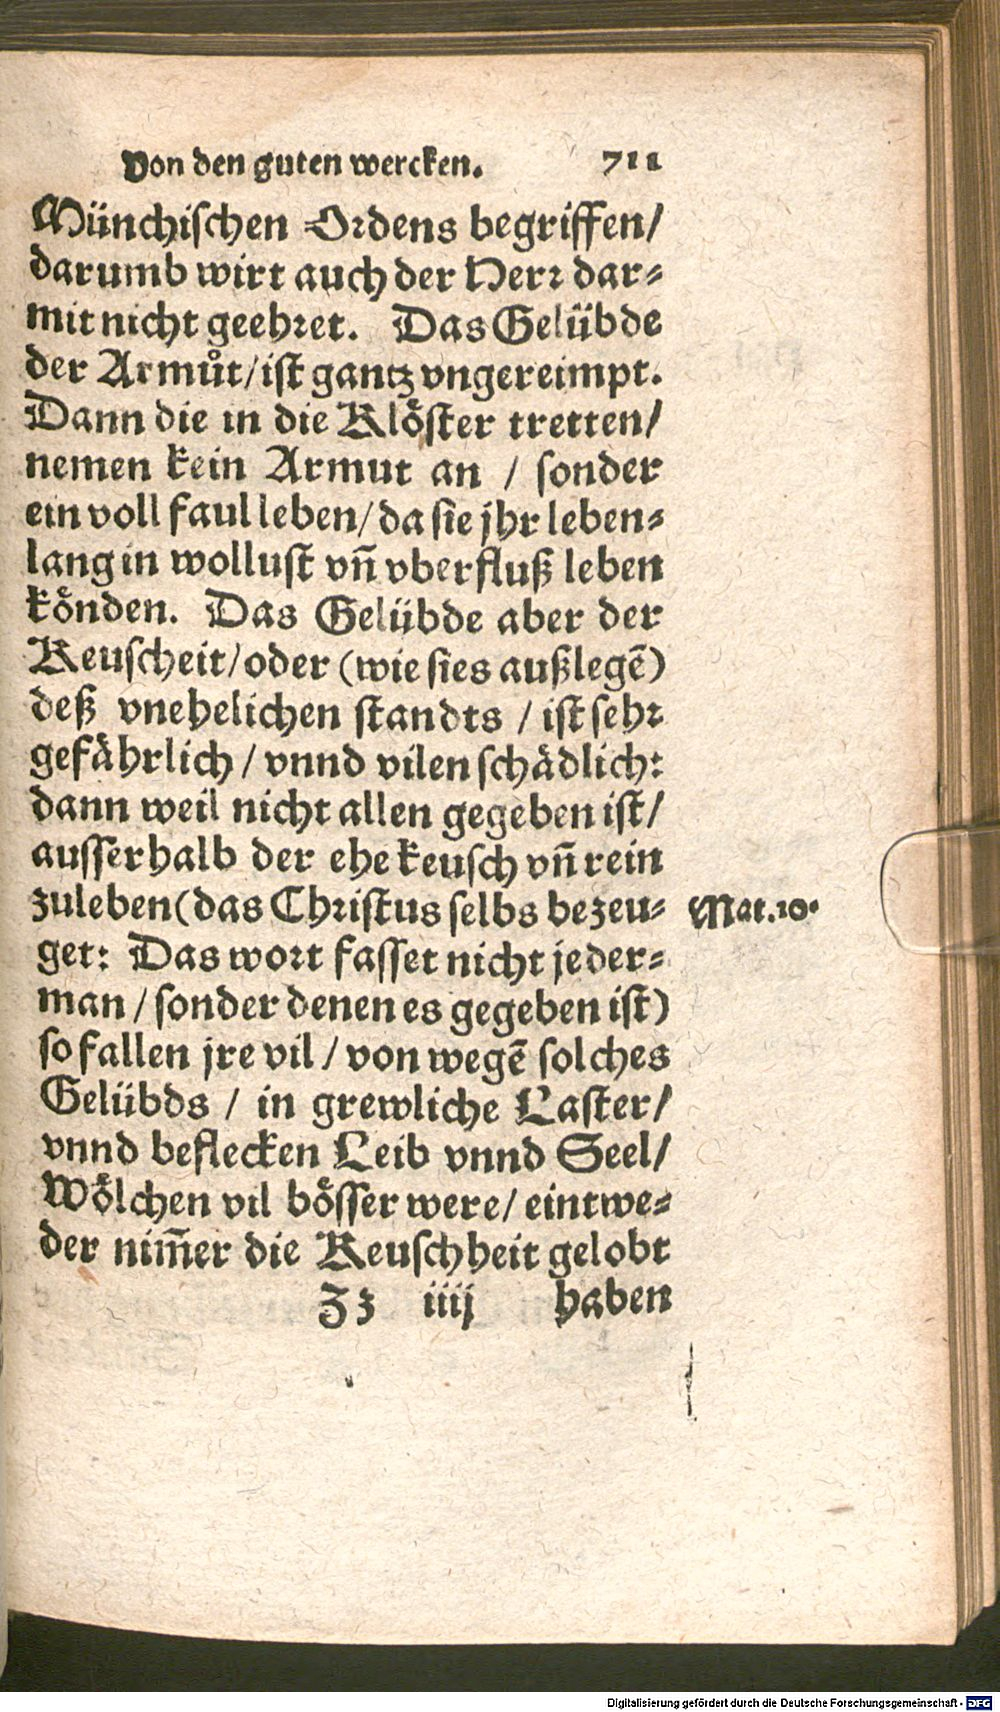 Von den guten wercken. 711
Münchischen Ordens begriffen/
darumb wirt auch der Herr dar⸗
mit nicht geehret. Das Gelübde
der Armůt/ist gantz vngereimpt.
Dann die in die Klöster tretten/
nemen kein Armut an / sonder
ein voll faul leben/da sie jhr leben⸗
lang in wollust vñ vberfluß leben
könden. Das Gelübde aber der
Keuscheit/oder (wie sies außlegẽ)
deß vnehelichen standts / ist sehr
gefährlich / vnnd vilen schädlich:
dann weil nicht allen gegeben ist/
ausserhalb der ehe keusch vñ rein
zuleben(das Christus selbs bezeu⸗ Mat.10.
get: Das wort fasset nicht jeder⸗
man / sonder denen es gegeben ist)
so fallen jre vil / von wegẽ solches
Gelübds / in grewliche Laster/
vnnd beflecken Leib vnnd Seel/
Wölchen vil bösser were/ eintwe⸗
der nim̃er die Keuschheit gelobt
Zz iiij haben
Digitalisierung gefördert durch die Deutsche Forschungsgemeinschaft - DFG